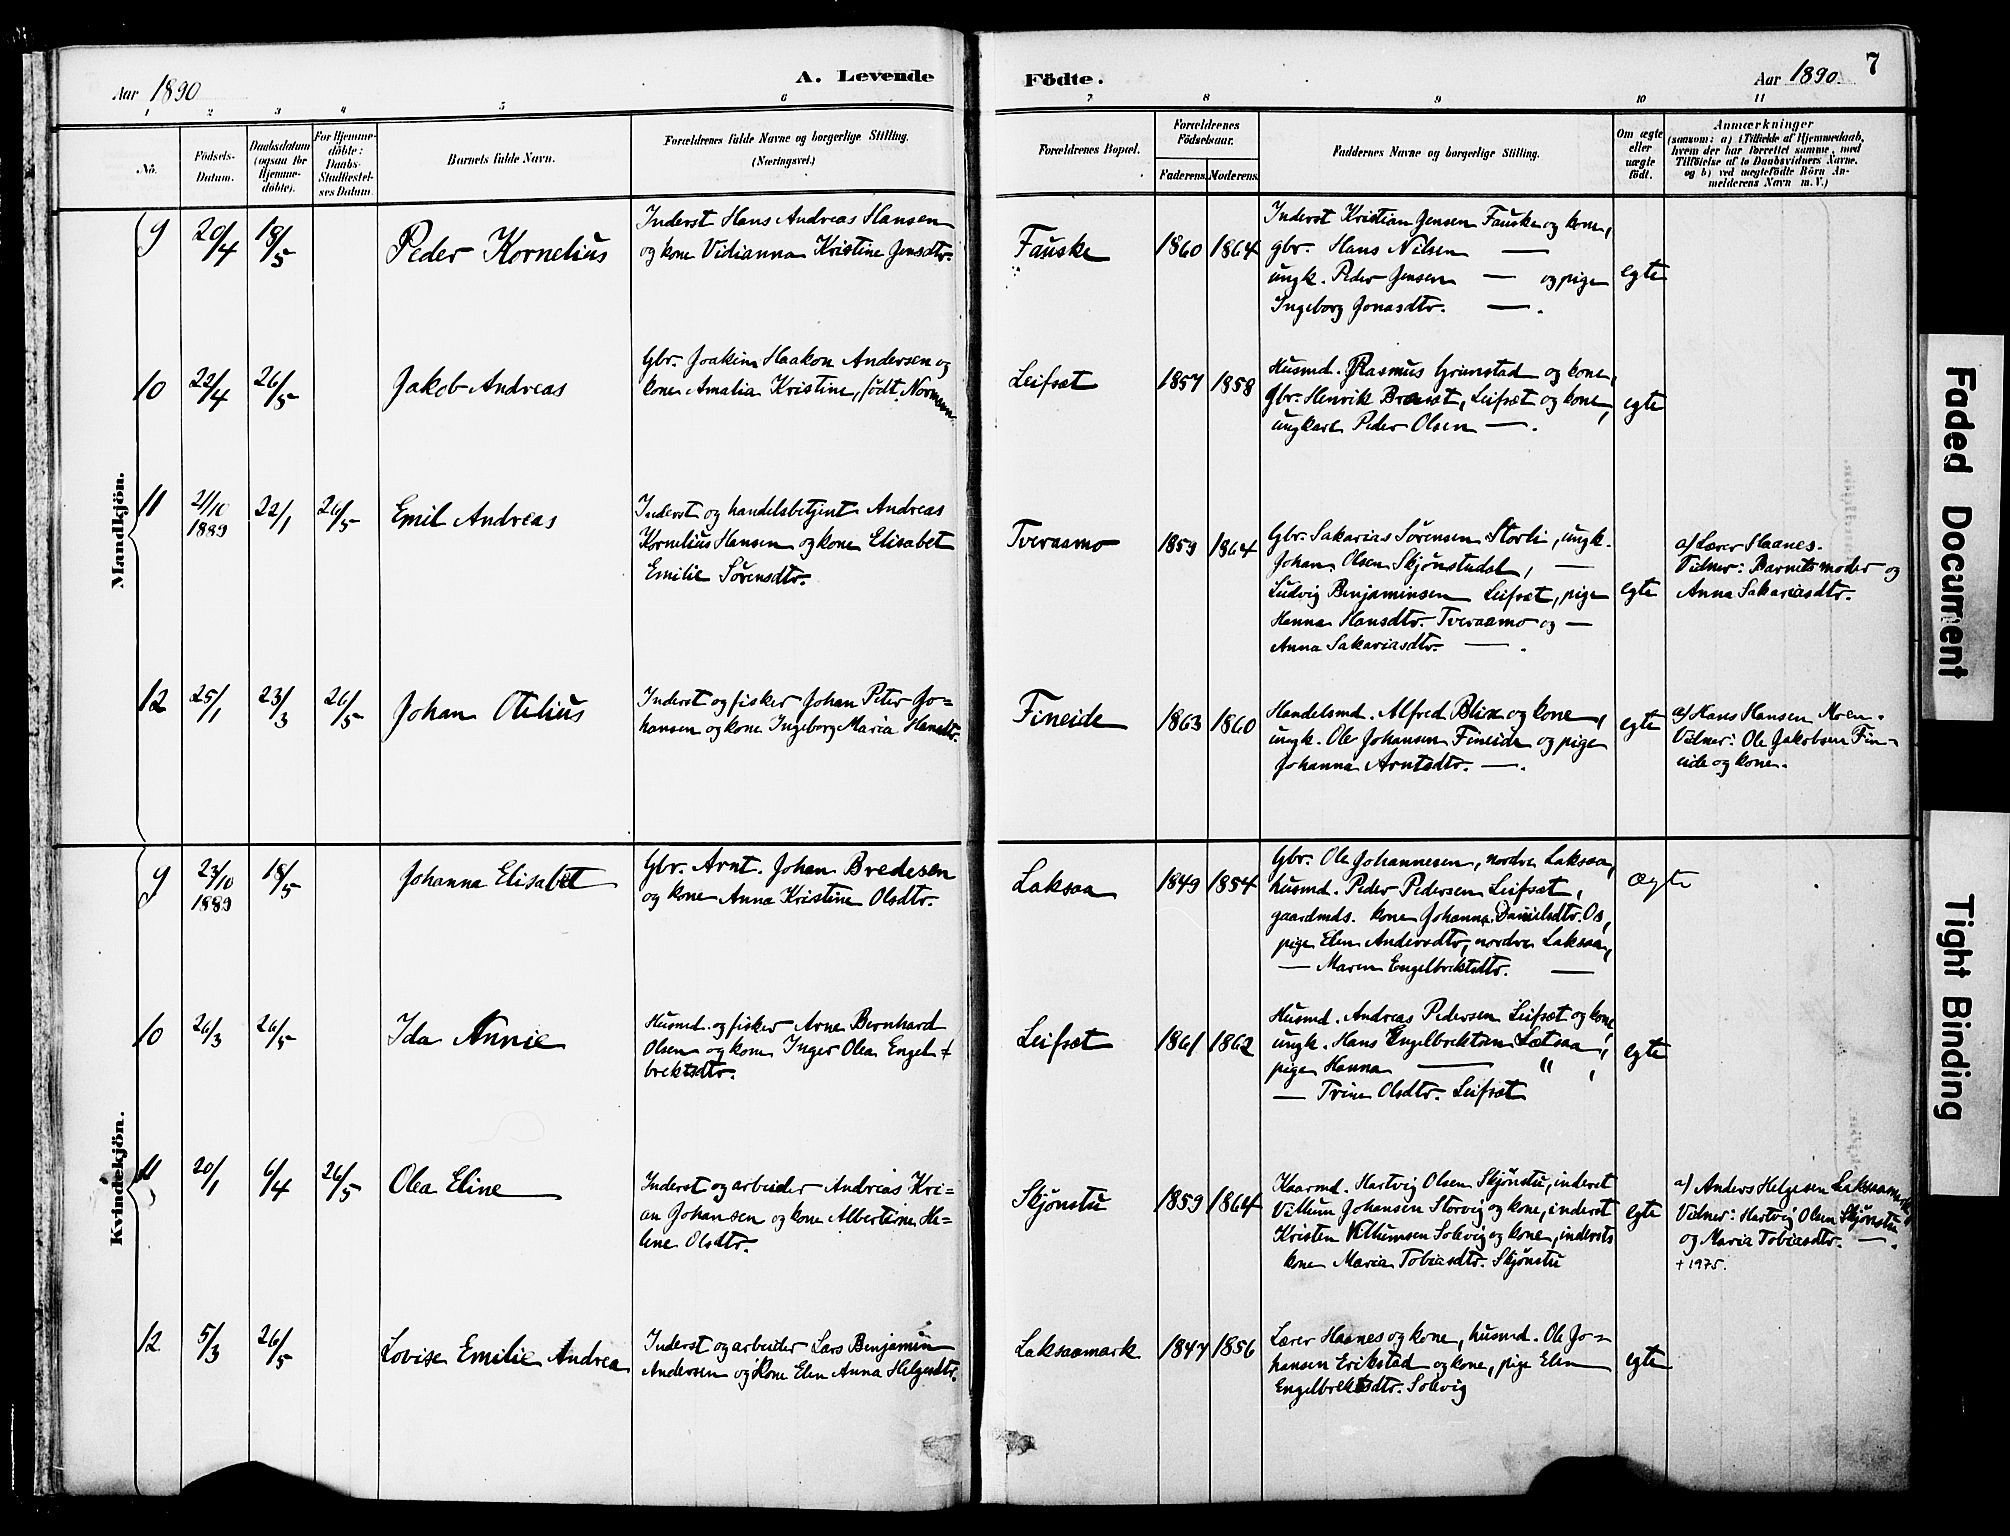 Aar 1890
A. Levende
Födte.
Aar 1890
7
1 2 3 4 5 6 7 8 9 10 11
No.
Födsels-
Datum.
Daabsdatum
(ogsaa for
Hjemme-
döbte).
For Hjemme-
döbte:
Daabs-
Stadfæstel-
ses Datum.
Barnets fulde Navn.
Forældrenes fulde Navne og borgerlige Stilling.
(Næringsvei.)
Forældrenes Bopæl.
Forældrenes
Födselsaar.
Faderens.
Moderens.
Faddernes Navne og borgerlige Stilling.
Om ægte
eller
uægte
födt.
Anmærkninger
(saasom: a) i Tilfælde af Hjemmedaab,
hvem der har forrettet samme, med
Tilföielse af to Daabsvidners Navne.
og b) ved uægtefödte Börn An-
melderens Navn m. V.)
Mandkjön.
9
20/4
18/5
Peder Kornelius
Inderst Hans Andreas Hansen
og kone Vidianna Kristine Jensdtr.
Fauske
1860
1864
Inderst Kristian Jensen Fauske og kone,
gbr. Hans Nilsen —
ungk. Peder Jensen — og pige
Ingeborg Jonasdtr. — .
egte
10
22/4
26/5
Jakob Andreas
Gbr. Joakim Haakon Andersen og
kone Amalia Kristine, født Normann
Leifsæt
1857
1858
Husmd. Rasmus Grimstad og kone,
Gbr. Henrik Braset, Leifsæt og kone,
ungkarl Peder Olsen — .
egte
11
21/10
1889
22/1
26/5
Emil Andreas
Inderst og handelsbetjent Andreas
Kornelius Hansen og kone Elisabet
Emilie Sørensdtr.
Tveraamo
1859
1864
Gbr. Sakarias Sørensen Storli, ungk.
Johan Olsen Skjønstudst, —
Ludvig Benjaminsen Leifsæt, pige
Hanna Hansdtr. Tveraamo og —
Anna Sakariasdtr. — .
egte
a) Lærer Haanes.
Vidner: Barnets moder og
Anna Sakariasdtr.
12
25/1
23/3
26/5
Johan Otelius
Inderst og fisker Johan Peter Jo=
hansen og kone Ingeborg Maria Hansdtr.
Fineide
1863
1860
Handelsmd. Alfred Blix og kone,
ungk. Ole Johansen Fineide og pige
Johanna Arntsdtr. — .
egte
a) Hans Hansen Moen.
Vidner: Ole Jakobsen Fin-
eide og kone.
Kvindekjön.
9
23/10
1889
18/5
Johanna Elisabet
Gbr. Arnt Johan Bredesen
og kone Anna Kristine Olsdtr.
Laksaa
1849
1854
Gbr. Ole Johannesen, nordre Laksaa,
husmd. Peder Pedersen Leifsæt,
gaardmds. kone Johanna Danielsdtr. Os,
pige Elen Andersdtr, nordre Laksaa,
— Maren Engelbrektsdtr. —
ægte
10
26/3
26/5
Ida Annie
Husmd. og fisker Arne Bernhard
Olsen og kone Inger Olea Engel=
brektsdtr.
Leifsæt
1861
1862
Husmd. Andreas Pedersen Leifsæt og kone,
ungk. Hans Engelbrektsen Laksaa,
pige Hanna — " ,
— Trine Olsdtr. Leifsæt
egte
11
20/1
6/4
26/5
Olea Eline
Inderst og arbeider Andreas Kri=
an Johansen og kone Albertine He=
line Olsdtr.
Skjønstu
1859
1864
Kaarmd. Hartvig Olsen Skjønstu, inderst
Villum Johansen Storvig og kone, inderst
Kristen Villumsen Solvig og kone, indersts
kone Maria Tobiasdtr. Skjønstu
egte
a) Anders Helgesen Laksaamark,
Vidner: Hartvig Olsen Skjønstu
og Maria Tobiasdtr. — .
+ 1975.
12
5/3
26/5
Lovise Emilie Andrea
Inderst og arbeider Lars Benjamin
Andersen og kone Elen Anna Helgesdtr.
Laksaamark
1847
1856
Lærer Haanes og kone, husmd. Ole Jo=
hansen Erikstad og kone, pige Elen
Engelbrektsdtr. Solvig
egte
Faded Document
Tight Binding